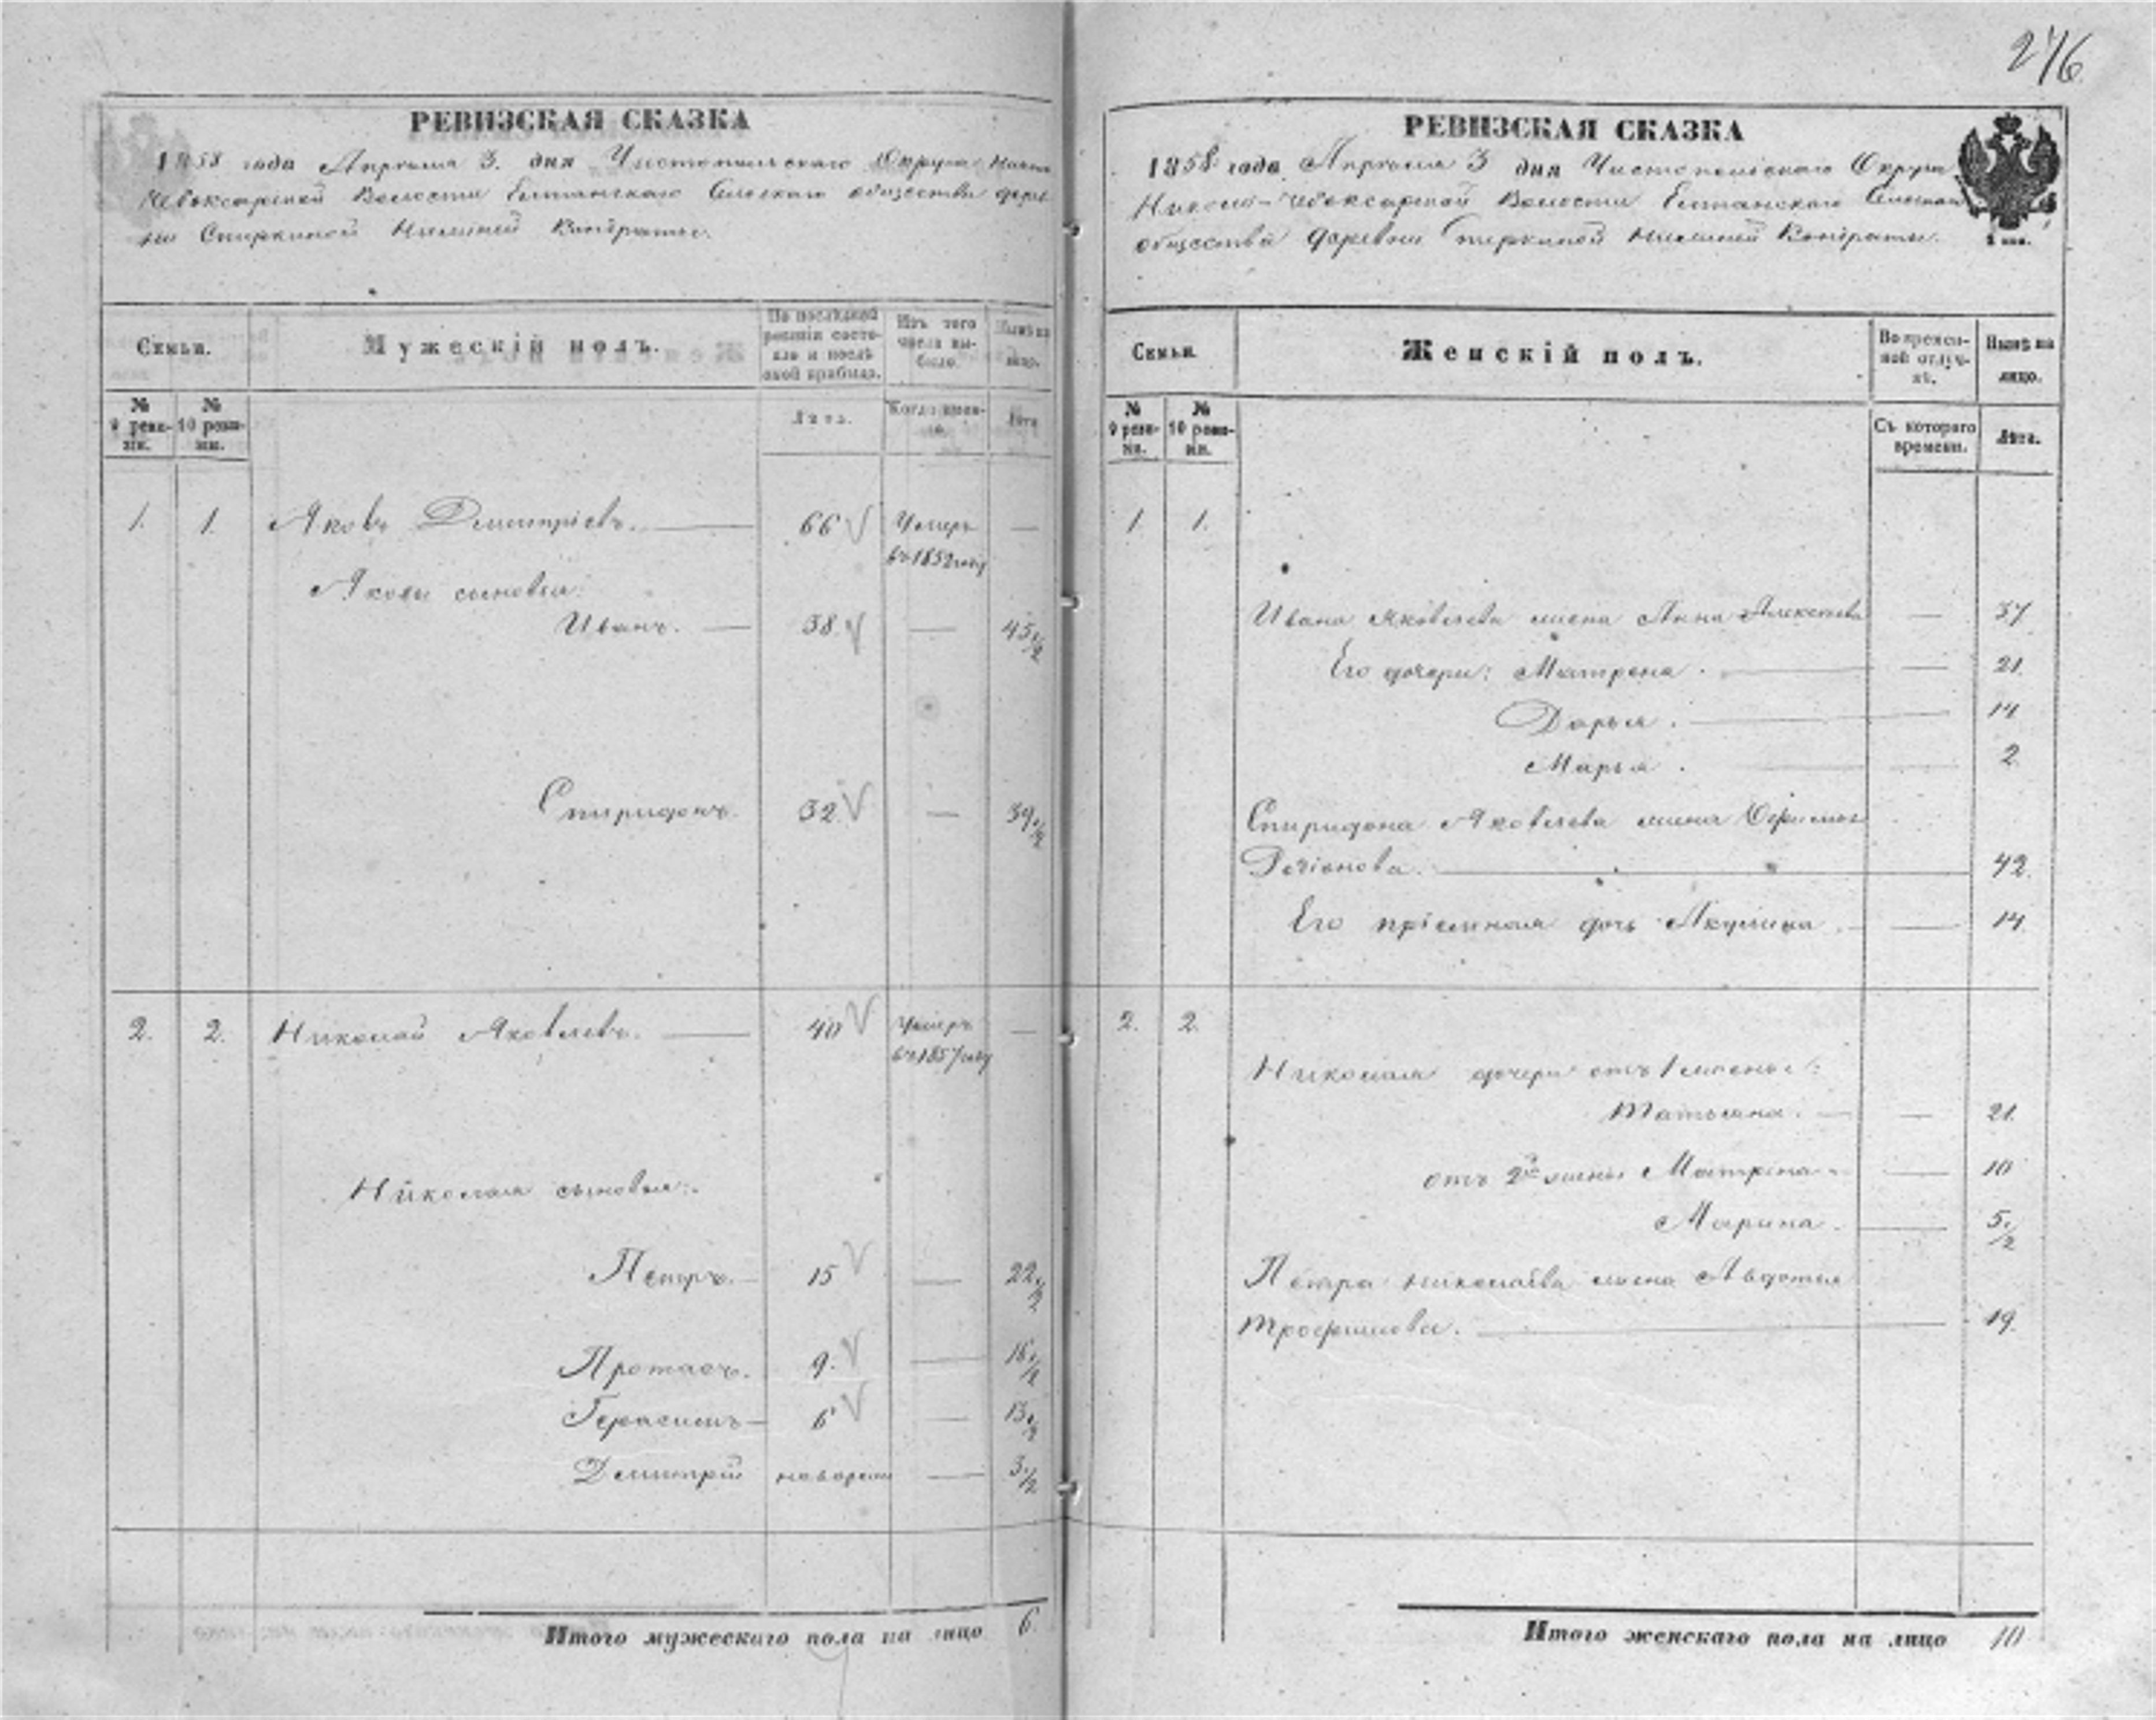 276
РЕВИЗСКАЯ СКАЗКА
1858 года Апреля 3. дня Чистопольскаго Округа
Чебоксарской Волости Елтанскаго Сельскаго общества дерев
ни Спиркиной Нижней Кондраты.
Семьи.
Мужескій полъ.
По послѣдней ревизіи состояло и послѣ оной прибыло.
Изъ того числа выбыло.
Нынѣ на лицо.
№ 9 ревизіи.
№ 10 ревизіи.
Лѣта.
Когда именно.
Лѣта
1. 1. Яковъ Дмитріевъ. — 66 Умеръ —
въ 1852 году
Якова сыновья:
Иванъ. — 38 — 45 1/2
Спиридонъ. 32 — 39 1/2
2. 2. Николай Яковлевъ. — 40 Умеръ —
въ 1857 году
Николая сыновья:
Петръ. — 15 — 22 1/2
Протасъ. 9. — 16 1/2
Герасимъ — 6 — 13 1/2
Дмитрій новорожд — 3 1/2
Итого мужескаго пола на лицо 6
РЕВИЗСКАЯ СКАЗКА
1858 года Апреля 3 дня Чистопольскаго Округа
Чебоксарской Волости Елтанскаго Сельскаго
общества деревни Спиркиной Нижней Кондраты.
Семьи.
Женскій полъ.
Во временной отлучкѣ.
Нынѣ на лицо.
№ 9 ревизіи.
№ 10 ревизіи.
Съ котораго времени.
Лѣта.
1. 1.
Ивана Яковлева жена Анна Алексеева — 37
Его дочери: Матрена. — 21.
Дарья. — 14
Марья. — 2
Спиридона Яковлева жена
Родіонова. — 42.
Его пріемная дочь Акулина. — 14
2. 2.
Николая дочери отъ 1 жены:
Татьяна. — 21.
отъ 2й жены Матрена — 10
Марина. — 5 1/2
Петра Николаева жена Авдотья
Трофимова. — 19.
Итого женскаго пола на лицо 10